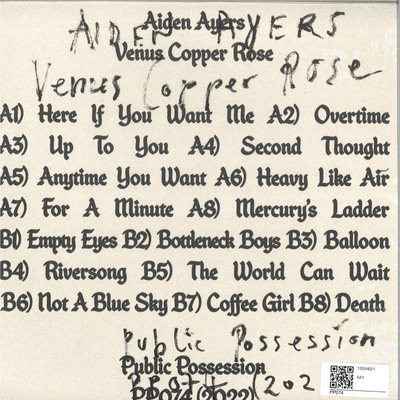 Aiden Ayers
AIDEN AYERS
Venus Copper Rose
Venus Copper Rose
A1) Here If You Want Me A2) Overtime
A3) Up To You A4) Second Thought
A5) Anytime You Want A6) Heavy Like Air
A7) For A Minute A8) Mercury's Ladder
B1) Empty Eyes B2) Bottleneck Boys B3) Balloon
B4) Riversong B5) The World Can Wait
B6) Not A Blue Sky B7) Coffee Girl B8) Death
Public Possession
Public Possession
PP074 (202
PP074 (2022)
1004621
PP074